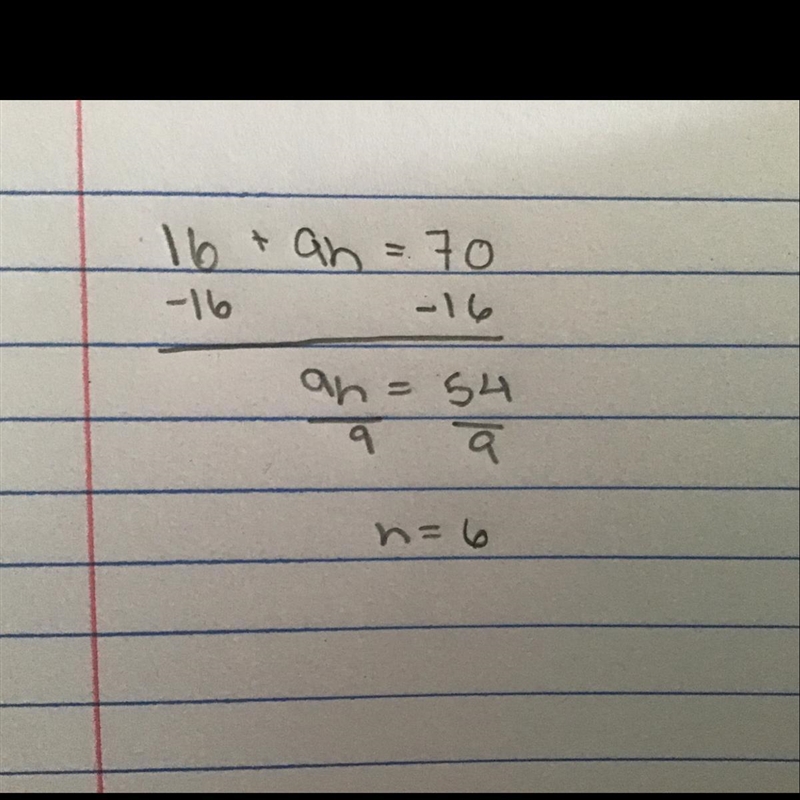 16 + 9n = 70
-16 -16
9n = 54
9 9
n = 6